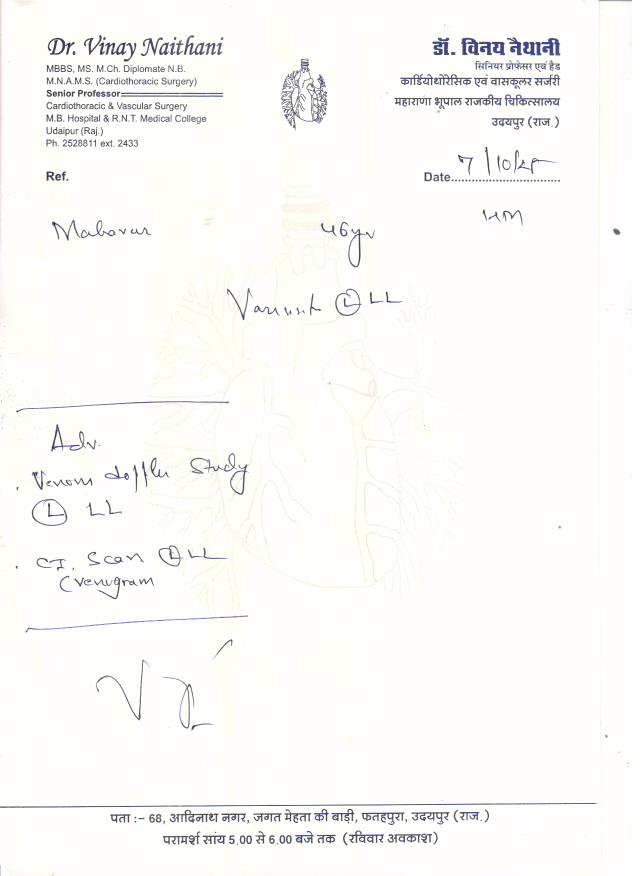 Dr. Vinay Naithani
MBBS, MS. M.Ch. Diplomate N.B.
M.N.A.M.S. (Cardiothoracic Surgery)
Senior Professor
Cardiothoracic & Vascular Surgery
M.B. Hospital & R.N.T. Medical College
Udaipur (Raj.)
Ph. 2528811 ext. 2433
डॉ. विनय नैथानी
सिनियर प्रोफेसर एवं हैड
कार्डियोथोरेसिक एवं वासकूलर सर्जरी
महाराणा भूपाल राजकीय चिकित्सालय
उदयपुर (राज.)
Ref.
Date 7/10/25
46yr
Ⓛ LL
Adv.
. Venous doppler Study
Ⓛ LL
. CT. Scan Ⓛ LL
(Venugram
पता :– 68, आदिनाथ नगर, जगत मेहता की बाड़ी, फतहपुरा, उदयपुर (राज.)
परामर्श सांय 5.00 से 6.00 बजे तक (रविवार अवकाश)